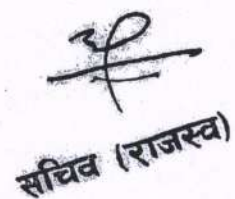 सचिव (राजस्व)